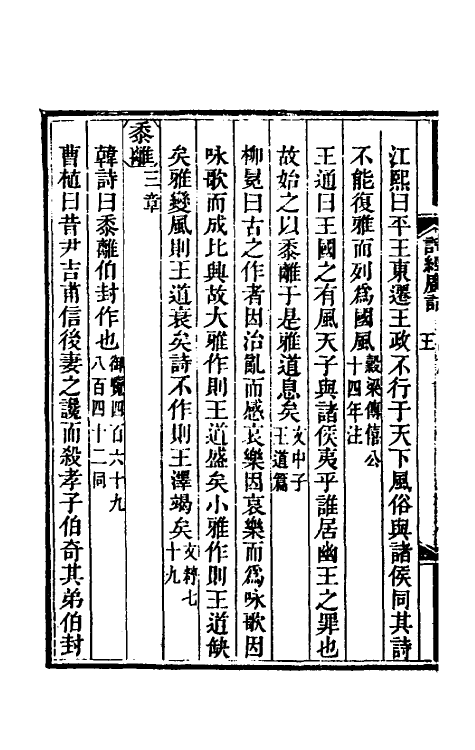 江熙曰平王東遷王政不行于天下風俗與諸侯同其詩
不能復雅而列爲國風穀梁傳僖公十四年注
王通曰王國之有風天子與諸侯夷乎誰居幽王之罪也
故始之以黍離于是雅道息矣文中子王道篇
柳冕曰古之作者因治亂而感哀樂因哀樂而爲咏歌因
咏歌而成比興故大雅作則王道盛矣小雅作則王道缺
矣雅變風則王道衰矣詩不作則王澤竭矣文粹七十九
黍離三章
韓詩曰黍離伯封作也御覽四百六十九八百四十二同
曹植曰昔尹吉甫信後妻之讒而殺孝子伯奇其弟伯封